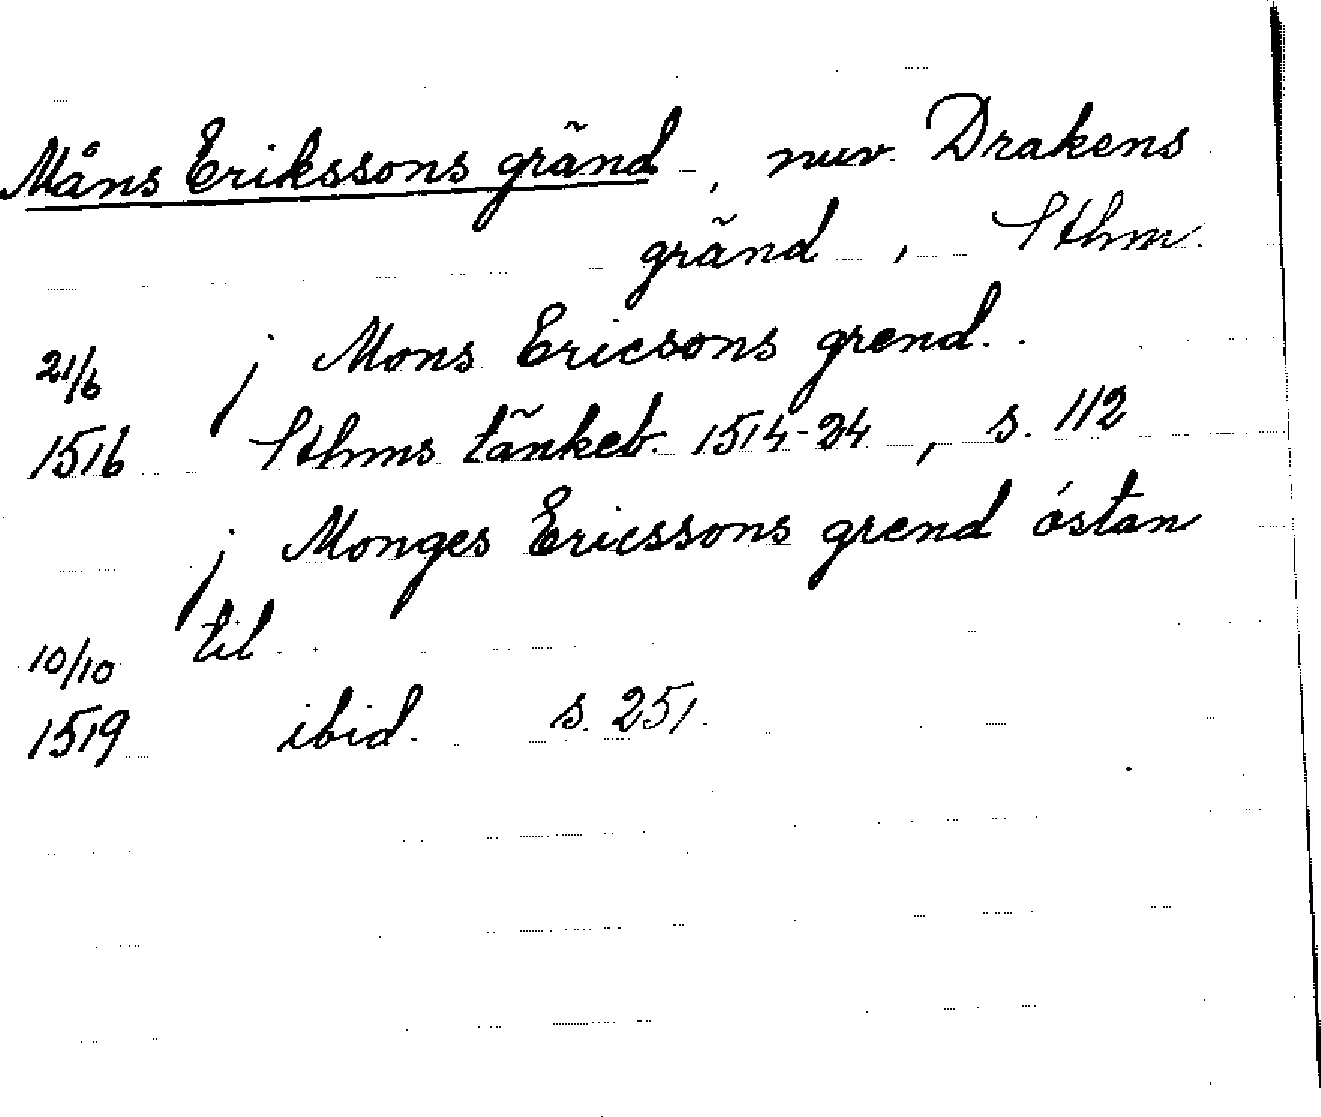 Måns Erikssons gränd, nuv. Drakens
gränd, Sthm.
21/6 j Mons Ericsons grend.
1516 Sthms tänkeb. 1514-24, s. 112
j Monges Ericssons grend óstan
10/10 til
1519 ibid. s. 251.